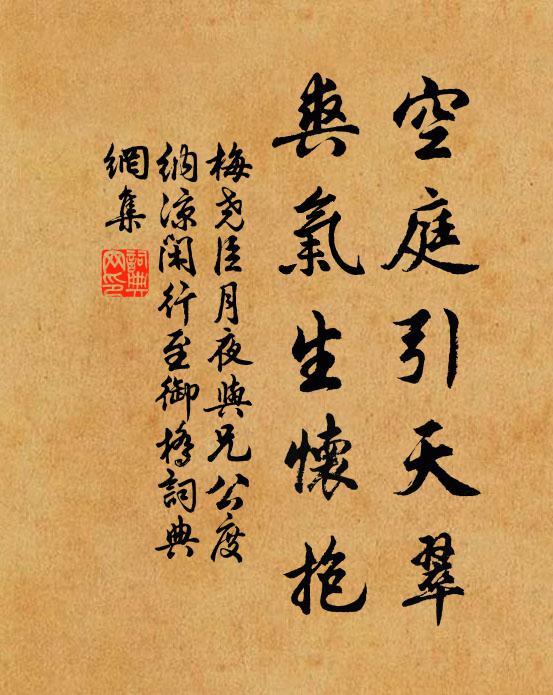 空庭引天翠
爽氣生懷抱
梅尧臣月夜與兄公度
纳凉闲行至御橋詞典
網集
詞典網印